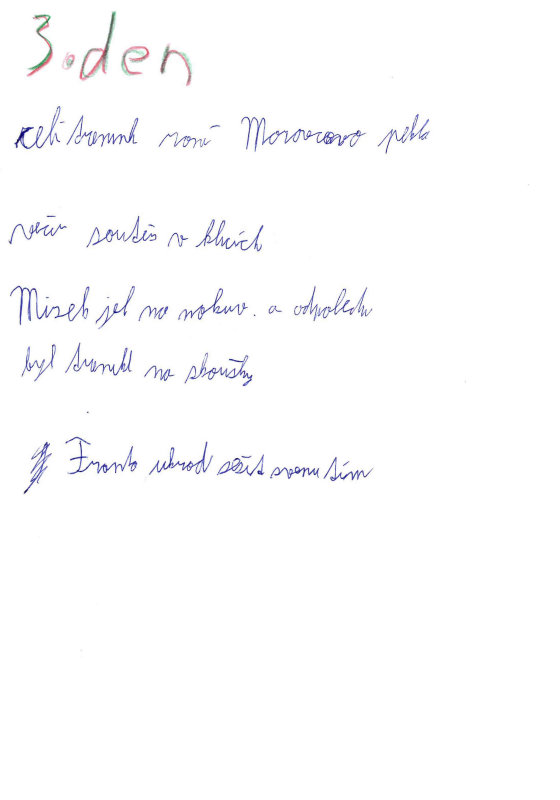 3.den
celi trenink ranní Moravcovo peklo
večir soutěs v klicích
Mizek jel na nakuv. a odpoledn
byl trenikl na skoušky
Franta ukrad sešit svemu tím